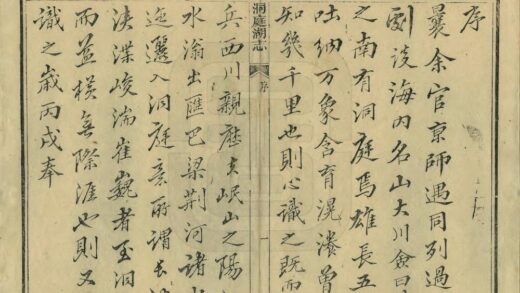 序
曩余官京師遇同列過
劇談海内名山大川僉曰
之南有洞庭焉雄長五
吐纳万象含育滉瀁曾
知幾千里也則心識之既而
洞庭湖志
序
一
兵西川親歷岷山之陽
水滃出匯巴梁荆河諸
迤邐入洞庭意所謂
渫峻湍崔巍者至洞
而益横無際涯也則又
識之歲丙戌奉